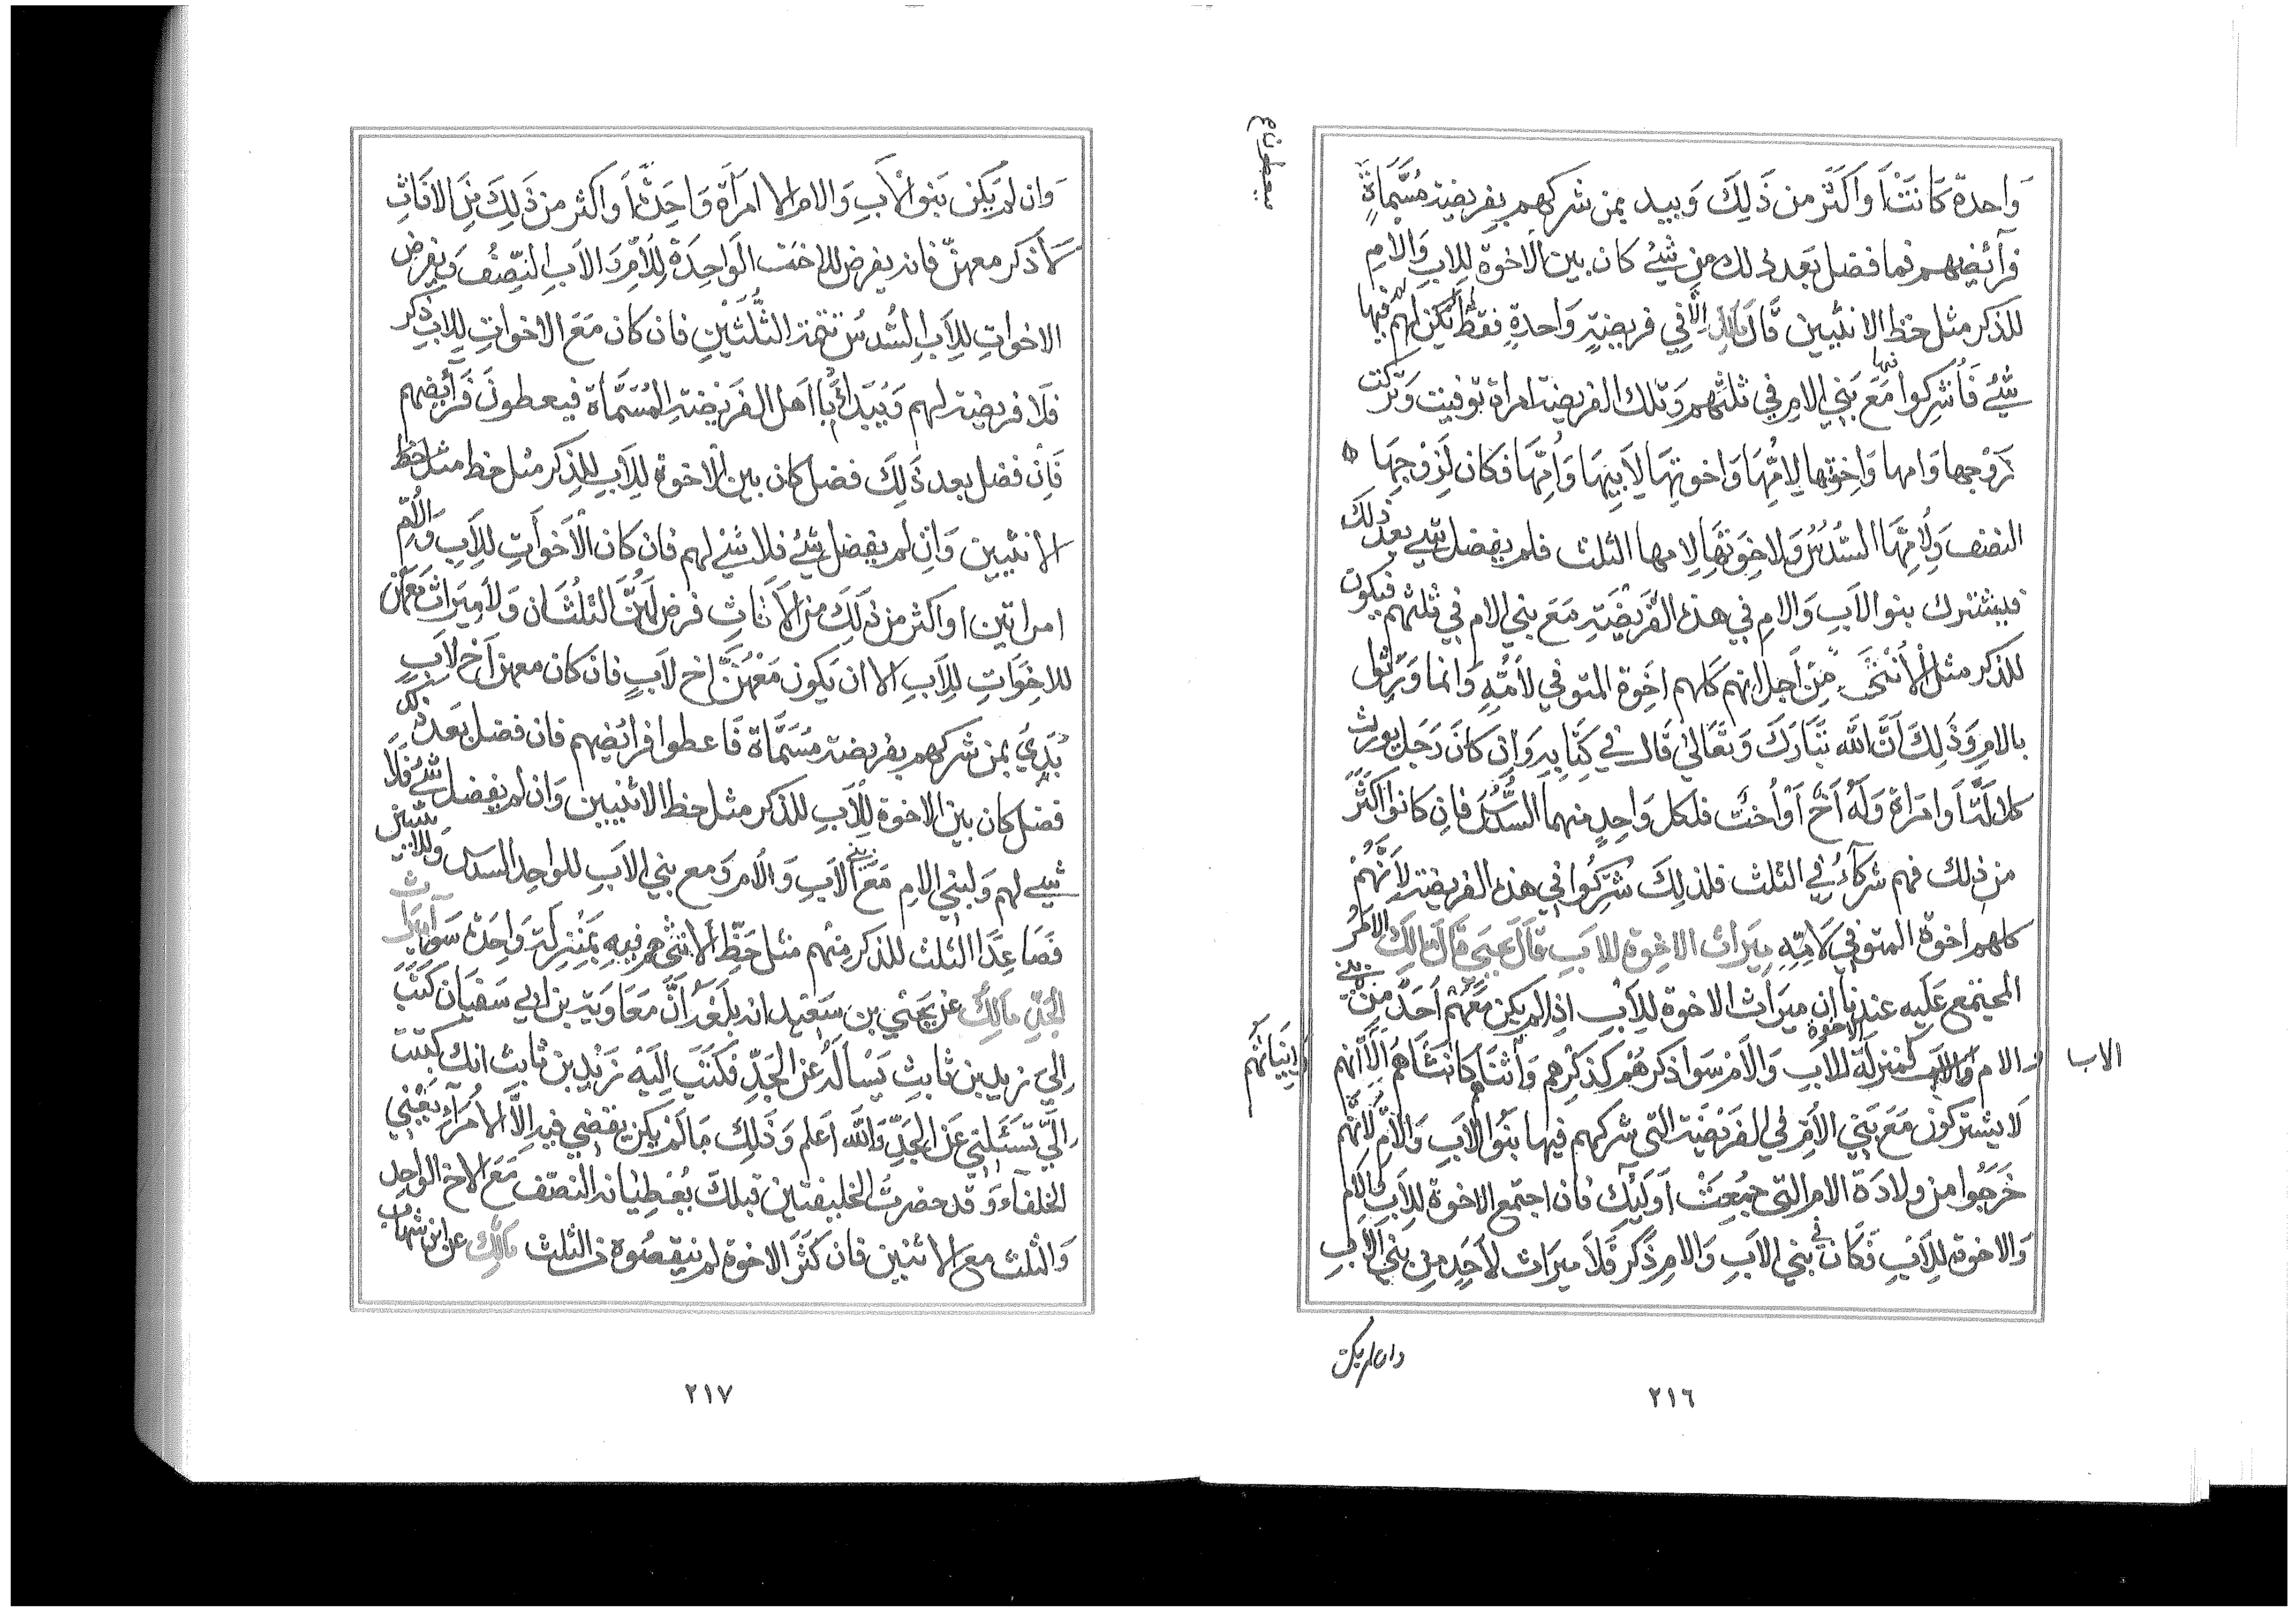 فيعطون ح
وَاحدةً كَانَتْ اَوَاكثَرَ من ذَلِكَ وَيبد بمن شركهم بفريضة مُسَمَّاةٍ
فرآئضهم فما فضل بَعد ذلك من شئ كان بين الاخوة للابِ وَالامِ
للذكر مثل حظ الانثيين قال مالك الا في فريضةٍ وَاحدةٍ فقط لم يكن لهم فيها
شئ فَاشركوا فيها مَعَ بَني الامِ في ثلثهم وَتلك الفريضة امراة توفيت وَتركت
زوجها وَامها وَاخوتها لامِّهَا وَاخوتهَا لابيهَا وَامِّهَا فكان لِزوجِهَا
النصف وَلامِّهَا السُّدُسُ وَلاخوَتهَا لامها الثلث فلم يفضل شئ بعد ذلك
فيشترك بنو الاَبِ وَالامِ في هذه الفَريضَةِ مَعَ بني الام في ثلثهم فيكون
للذكر مثل الانثى مِنْ اَجل انهم كلهم اخوَة المتوفي لاُمِّهِ وَانما وَرثوا
بالامِ وَذَلِكَ اَنَّ اللّه تبَارَكَ وَتعَالىٰ قال في كِتَابِهِ وَاِن كانَ رَجل يورث
كلالَة اَوامرَاة وَلَهُ اَخٌ اَوْ اُختٌ فلكل وَاحِدٍ منهما السُّدُسُ فاِن كانوا اكثَرَ
من ذلك فهم شركآءُ في الثلث فلذلِكَ شُرِّكُوا في هذه الفريضة لاَنَّهُمْ
كلهم اخوة المتوفي لاُمِّهِ ميرَاث الاخوة للابِ قال يحيى قال مالك الامرُ
المجتمع عَلَيه عندنا ان ميرَاث الاخوة للابِ اذا لم يكن مَعَهم اَحَدٌ من بني
الاب
الام وَالاب كمنزلة الاخوة للابِ وَالامِ سَوا ذكرهُمْ كذكرهم وَاُنثاهم كانثاهُم اِلاَّ اَنهم
لاَ يشتركون مَعَ بَني الاُمِّ في الفَرِيضَة التي شركهم فيها بَنوا الاَبِ وَالاُمِّ لاَنَّهُم
خَرَجُوا من ولادَة الام التي جمَعَتْ اولَئِكَ فان اجتمع الاخوة للاَبِ وَالام
وَالاخوة للاَبِ فكان في بني الاَبِ وَالامِ ذَكر فلاَ ميرَاث لاَحَدٍ مِن بَني الاَبِ
وان لم يكن
٢١٦
وَان لم يَكن بَنو الاَبِ وَالام الا امرَاَة وَاحِدَة اَواكثر من ذَلِكَ مِنَ الاناثِ
لا ذكر معهن فانه يفرض للاخت الوَاحِدَةِ لِلاُمِّ وَالاَبِ النِّصْفُ وَيفرض
الاخواتِ للاَبِ السُّدسُ تتمة الثُّلُثَيْنِ فان كان مَعَ الاخوَاتِ لِلاب ذكر
فَلا فريضة لهم وَيُبَدأ باهل الفَريضَةِ المُسَمَّاة فيعطون فَرَآئضهم
فَاِن فضل بعد ذَلِكَ فضل كان بين الاخوة لِلاَبِ للذكر مثل حظ مثل حظ
الانثيين وَاِن لم يفضل شئ فلا شئ لهم فان كان الاَخواتِ للاَبِ وَالاُمِّ
امراتين اواكثر من ذلِكَ من الاناثِ فرض لَهُنَّ الثلثَان وَلاَ ميرَاثَ معَهن
للاخَوَاتِ لِلاَبِ الا ان يَكون مَعَهُنَّ اخ لاَبٍ فان كان معهن اَخ لاَبٍ
بُدِئَ بمن شركهم بفريضة مُسَمَّاة فَاعطوا فرائضهم فان فضل بَعد ذلك
فضل كان بين الاخوة لِلاَبِ للذكر مثل حظ الانثيين وَان لم يفضل شئ فَلاَ
شئ لهم وَلبني الامِ مَعَ بني الاَبِ وَالاُم وَمع بني الاَبِ للواحِد السدس وَللاثنين
فصَاعِدًا الثلث للذكر منهم مثل حَظِّ الانثى هم فيهِ بمنزِلَة وَاحِدَة سَوآء ميرَاث
الجَدِّ مالِكُ عن يحيَى بن سَعيد انه بلَغَهُ اَنَّ مُعَاويَة بن ابي سَفيَان كتَبَ
اِلىَ زيد بن ثابتٍ يَسْاَلُه عن الجَدِّ فكتَبَ اِلَيْهِ زَيْد بن ثابت انك كتبت
اِلَيَّ تسَئَلني عَن الجَدِّ وَاللّه اَعلم وَذَلِكَ مَا لَمْ يكن يقضي فيه اِلاَّ الامَرَآءُ يَعني
الخلفآءَ وَقد حضرتُ الخليفتين قبلك يُعْطِيَانه النصف مَعَ الاخ الواحِدِ
وَالثلث مع الاثنين فان كَثرَ الاخوة لم ينقصُوه من الثلث مالك عن ابن شهاب
٢١٧